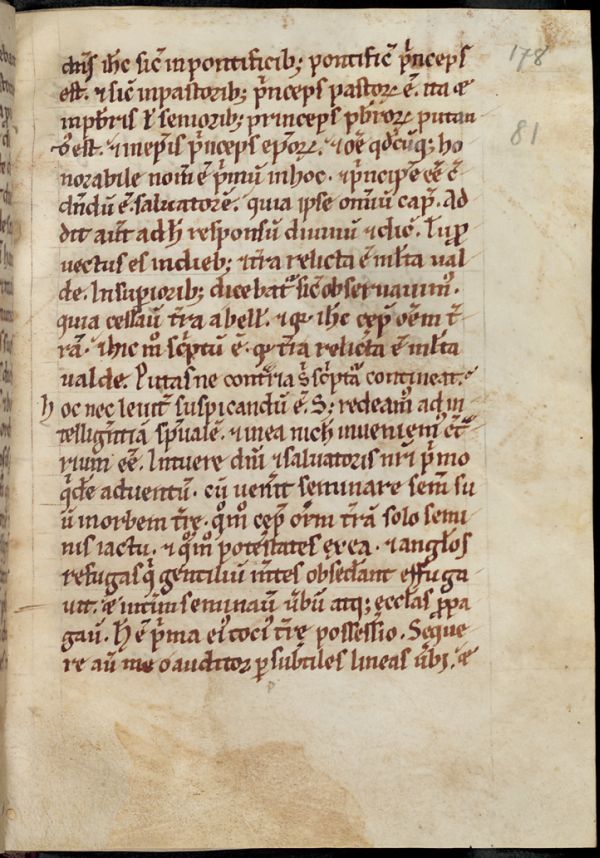 dñs ihc̅ sic̅ in pontificib; pontific̅ p̅nceps
est. ⁊ sic̅ in pastorib; p̅nceps pastoꝝ ē. ita æ
in pb̅ris ł seniorib; princeps pb̅roꝝ putan
dꝰ est. ⁊ in ep̅is p̅nceps ep̅oꝝ. ⁊ oē qd̅cūq; ho
norabile nom̅ ē p̅mū in hoc. ⁊ p̅ncipē eē c̅
dn̅dū ē. saluatorē. quia ipse omīū cap̅. Ad
dit aut̅ ad h̅ responsū diuinū ⁊ dic̅.
uectus es in dieb; ⁊ t̅ra relicta ē ml̅ta ual
de. In supiorib; dicebat᷑ sic̅ obseruauimꝰ.
quia cessau̅ t̅ra a bell̅. ⁊ qꝫ ihc̅ cep̅ oēm t̅
rā. ⁊ hic m̊ sc̅ptū ē. qꝫ t̅ra relicta ē ml̅ta
ualde. Putas ne cont̅ria s̅ sc̅pta contineat.
hoc nec leuit̅ suspicandū ē. S; redeamꝰ ad in
telligentiā sp̅ualē. ⁊ in ea nich̅ inueniemꝰ c̅t̅
rium eē. Intuere dn̅i ⁊ saluatoris nr̅i p̅mo
q̅dē aduentū. cū uen̅it seminare sem̅ su
ū in orbem t̅re. qm̊o cep̅ om̅m t̅rā solo semi
nis iactu. ⁊ qm̊o potestates ex ea. ⁊ anglos
refugas q̅ gentiliū m̅tes obsed̅ant effuga
uit. æ int̅im seminau̅ ūbū atq; eccl̅as p̅pa
gau̅. H̅ ē p̅ma eiꝰ tociꝰ t̅re possessio. Seque
re aū me o auditor p subtiles lineas ūbi. æ
178
81